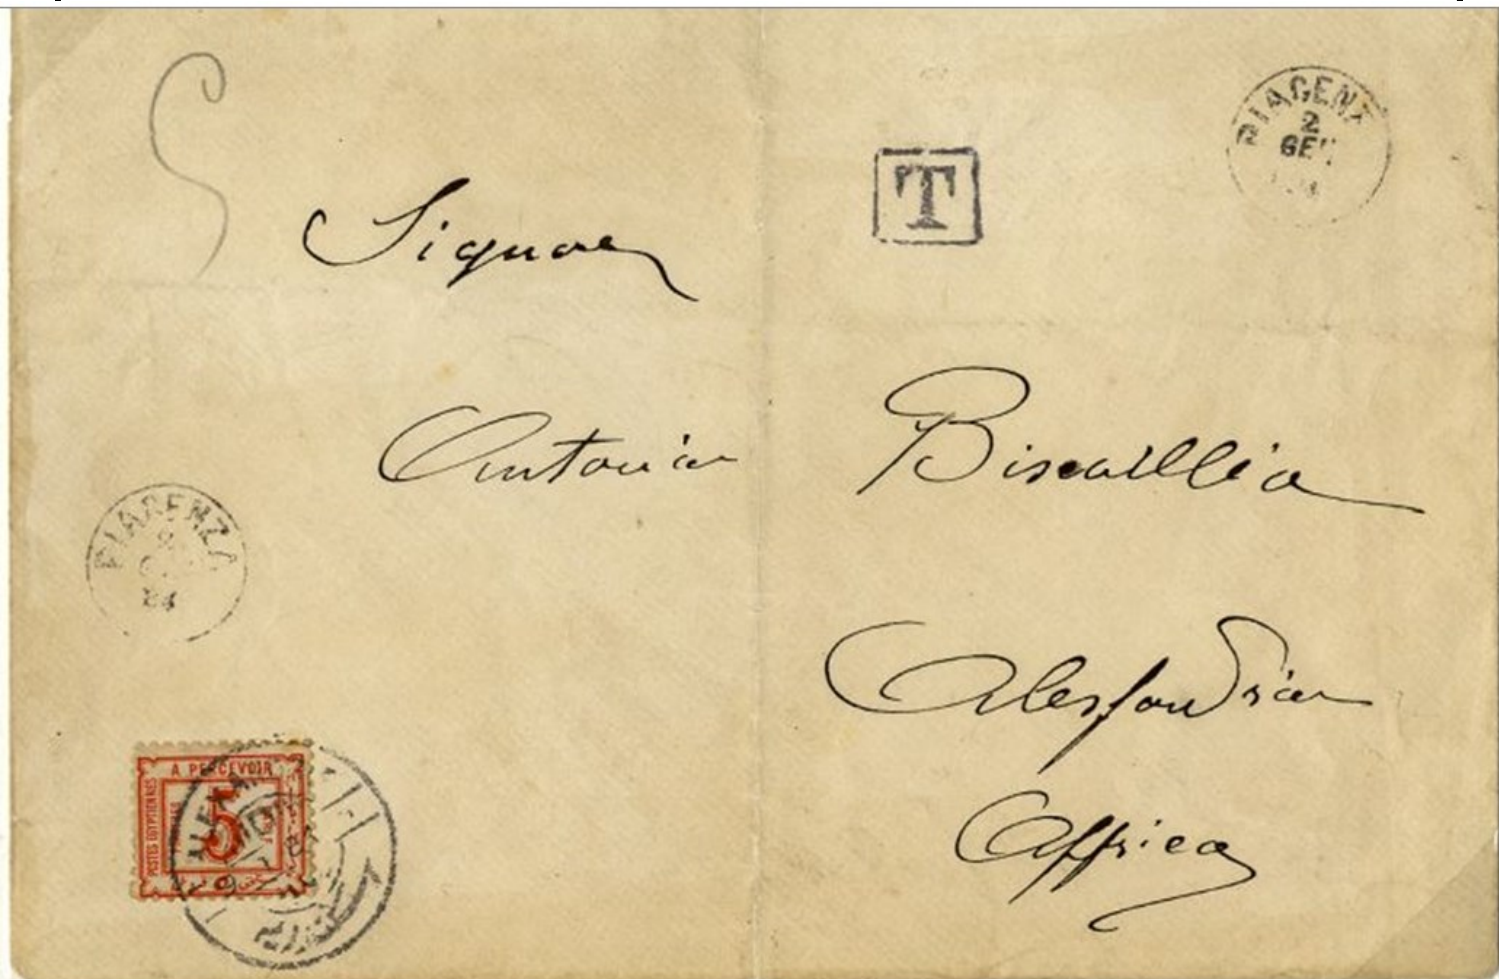 5
PIACENZ
2
GEN
T
Signor
Antonio Biscallia
PIACENZA
84
Alessandria
Affrica
A PERCEVOIR
POSTES EGYPTIENNES
5